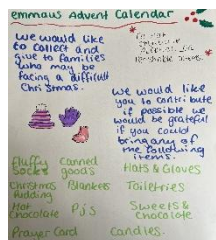 emmaus Advent Calendar
we would like
to collect and
give to families
who may be
facing a difficult
Christmas.
we would like
you to contribute
if possible we
would be grateful
if you could
bring any of
the following
items.
Fluffy
Socks
Canned
goods
Hats & Gloves
Christmas
Pudding
Blankets
Toiletries
Hot
Chocolate
Pjs
Sweets &
chocolate
Prayer Card
Candles.